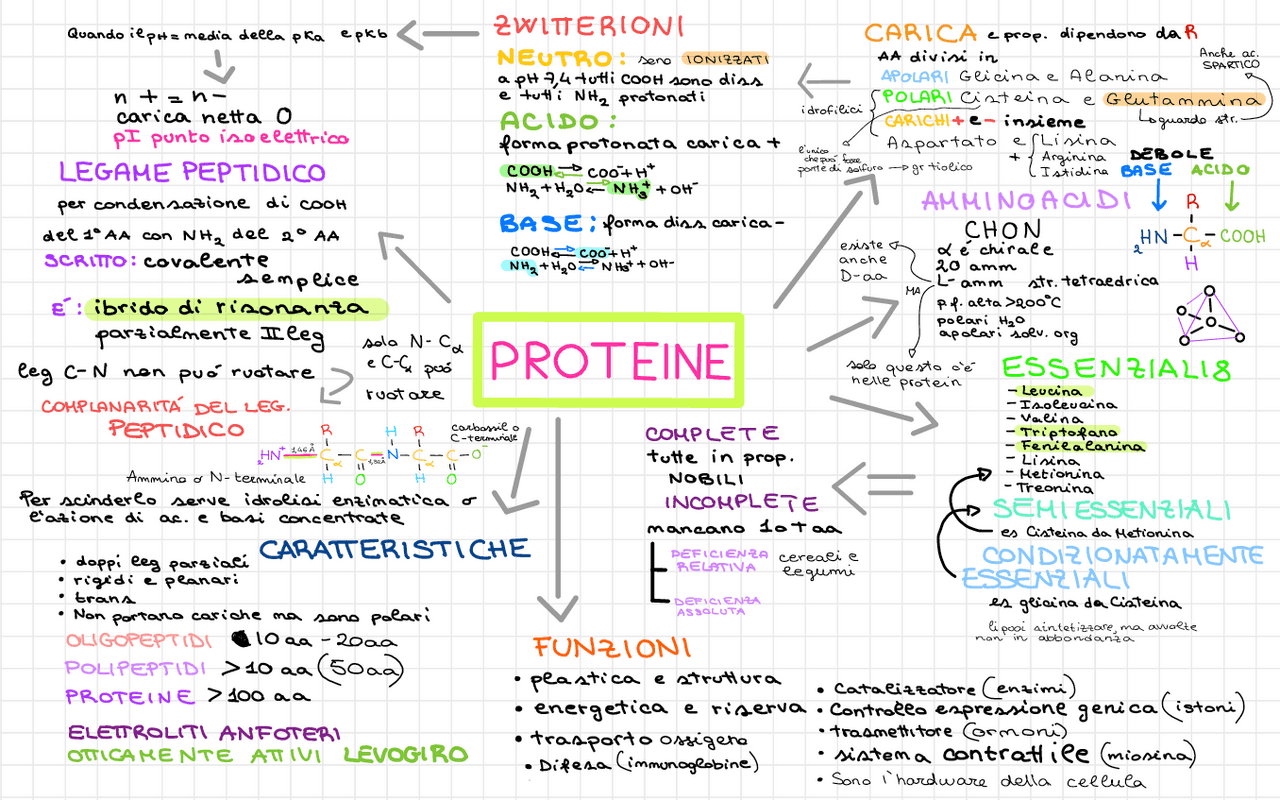 ZWITTERIONI
Quando il pH = media della pKa e pKb
n + = n -
carica netta 0
pI punto isoelettrico
NEUTRO: sono IONIZZATI
a pH 7,4 tutti COOH sono diss
e tutti NH2 protonati
ACIDO:
forma protonata carica +
COOH ⇌ COO⁻ + H⁺
NH2 + H2O ⇌ NH3⁺ + OH⁻
BASE: forma diss carica -
COOH ⇌ COO⁻ + H⁺
NH2 + H2O ⇌ NH3⁺ + OH⁻
CARICA e prop. dipendono da R
AA divisi in
APOLARI Glicina e Alanina
idrofilici
POLARI Cisteina e Glutammina
CARICHI + e - insieme
Aspartato e Lisina
+ Arginina
Istidina
Anche ac.
SPARTICO
guardo str.
l'unico
che può fare
ponte di solfuro → gr tiolico
DEBOLE
BASE ACIDO
R
2HN - C - COOH
α
H
AMMINOACIDI
CHON
α é chirale
20 amm
L- amm str. tetraedrica
p.f. alta >200°C
polari H2O
apolari solv. org
esiste
anche
D-aa
MA
solo questo c'è
nelle protein
LEGAME PEPTIDICO
per condensazione di COOH
del 1° AA con NH2 del 2° AA
SCRITTO: covalente
semplice
E': ibrido di risonanza
parzialmente II leg
leg C-N non puó ruotare
solo N-Cα
e C-Cα puó
ruotare
COMPLANARITÁ DEL LEG.
PEPTIDICO
R H R
2HN⁺ 1,46Å C α C 1,32Å N C α C O⁻
H O H O
carbossil o
C-terminale
Ammino o N-terminale
Per scinderlo serve idrolisi enzimatica o
l'azione di ac. e basi concentrate
PROTEINE
CARATTERISTICHE
• doppi leg parziali
• rigidi e planari
• trans
• Non portano cariche ma sono polari
OLIGOPEPTIDI 10 aa - 20aa
POLIPEPTIDI >10 aa (50aa)
PROTEINE >100 aa
ELETTROLITI ANFOTERI
OTTICAMENTE ATTIVI LEVOGIRO
COMPLETE
tutte in prop.
NOBILI
INCOMPLETE
mancano 1 o + aa
DEFICIENZA
RELATIVA
cereali e
legumi
DEFICIENZA
ASSOLUTA
ESSENZIALI 8
- Leucina
- Isoleucina
- Valina
- Triptofano
- Fenilalanina
- Lisina
- Metionina
- Treonina
SEMIESSENZIALI
es Cisteina da Metionina
CONDIZIONATAMENTE
ESSENZIALI
es glicina da Cisteina
li puoi sintetizzare, ma avvolte
non in abbondanza
FUNZIONI
• plastica e struttura
• energetica e riserva
• trasporto ossigeno
• Difesa (immunoglobine)
• Catalizzatore (enzimi)
• Controllo espressione genica (istoni)
• trasmettitore (ormoni)
• sistema contrattile (miosina)
• Sono l'hardware della cellula